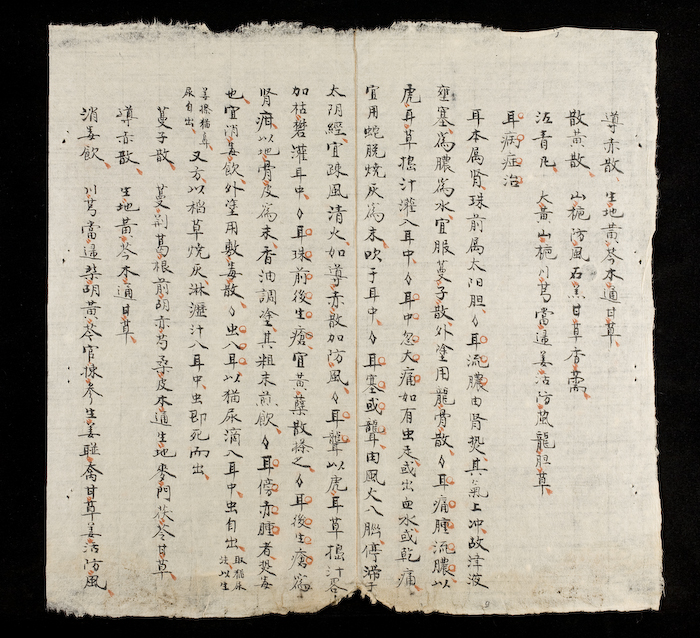 導赤散、生地黃芩木通甘草、
散黃散、山梔防風石羔甘草香薷、
沽青凡、大黃山梔川芎當進姜沽防風龍胆草、
耳病症治
耳本属肾珠前属太阳胆、耳流膿由肾熒其氣上冲故津液
壅塞爲膿爲水宜服蔓子散外塗用龍骨散、耳痛腫流膿以
虎耳草搗汁灌入耳中、耳中忽大痛如有虫走或出血水或乾痛
宜用蛇脫燒灰爲末吹于耳中、耳塞或聾耳由風火八腦停滯于
太阴經宜疎風清火如導赤散加防風、耳聾以虎耳草搗汁畧
加枯礬灌耳中、耳珠前後生瘡宜黃蘗散搽之、耳後生瘡爲
肾疳以地骨皮爲末香油調塗其粗末煎飲、耳傍赤腫者熒毒
也宜消毒飲外塗用敷毒散、虫八耳以猫尿滴八耳中虫自出、取猫尿法以生
姜搽猫鼻尿自出、又方以稻草燒灰淋瀝汁八耳中虫即死而出、
蔓子散、蔓荆葛根前胡赤芍桑皮木通生地麥門茯苓甘草
導赤散、生地黃芩木通甘草、
消毒飲、川芎當進柴胡黃芩官揀參生姜連喬甘草姜沽防風